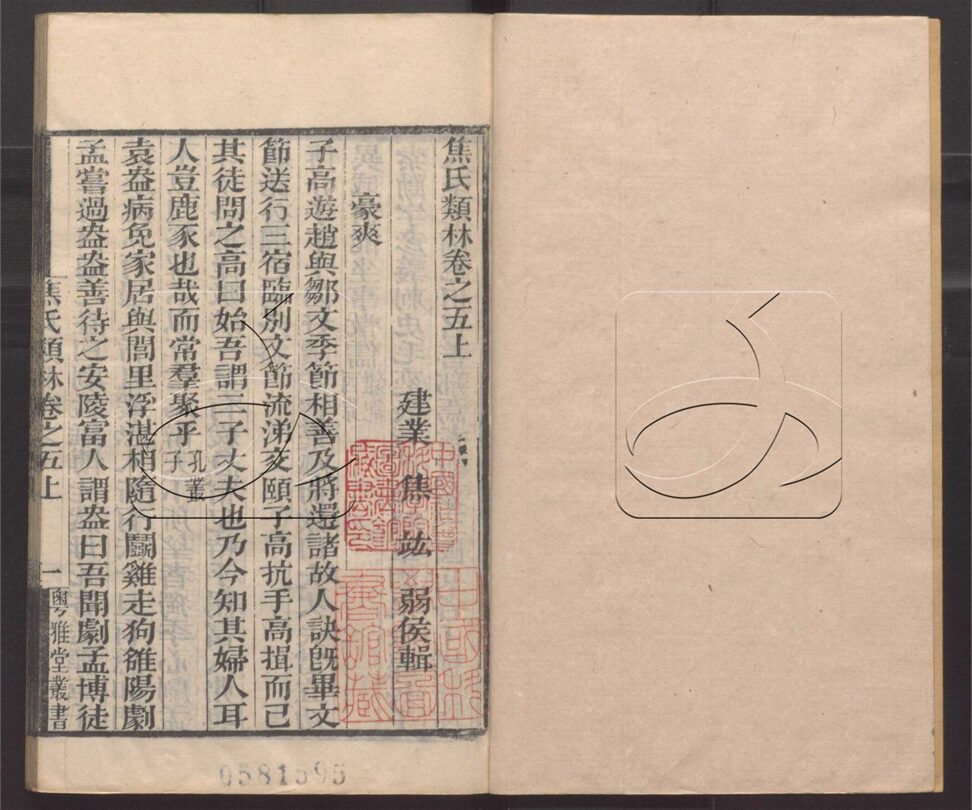 焦氏類林卷之五上
建業 焦 竑 弱侯輯
豪爽
子高遊趙與鄒文季節相善及將還諸故人訣旣畢文
節送行三宿臨別文節流涕交頤子高抗手高揖而已
其徒問之高曰始吾謂二子丈夫也乃今知其婦人耳
人豈鹿豕也哉而常羣聚乎孔叢子
袁盎病免家居與閭里浮湛相隨行鬬雞走狗雒陽劇
孟嘗過盎盎善待之安陵富人謂盎曰吾聞劇孟博徒
焦氏類林卷之五上 一 粤雅堂叢書
0581595